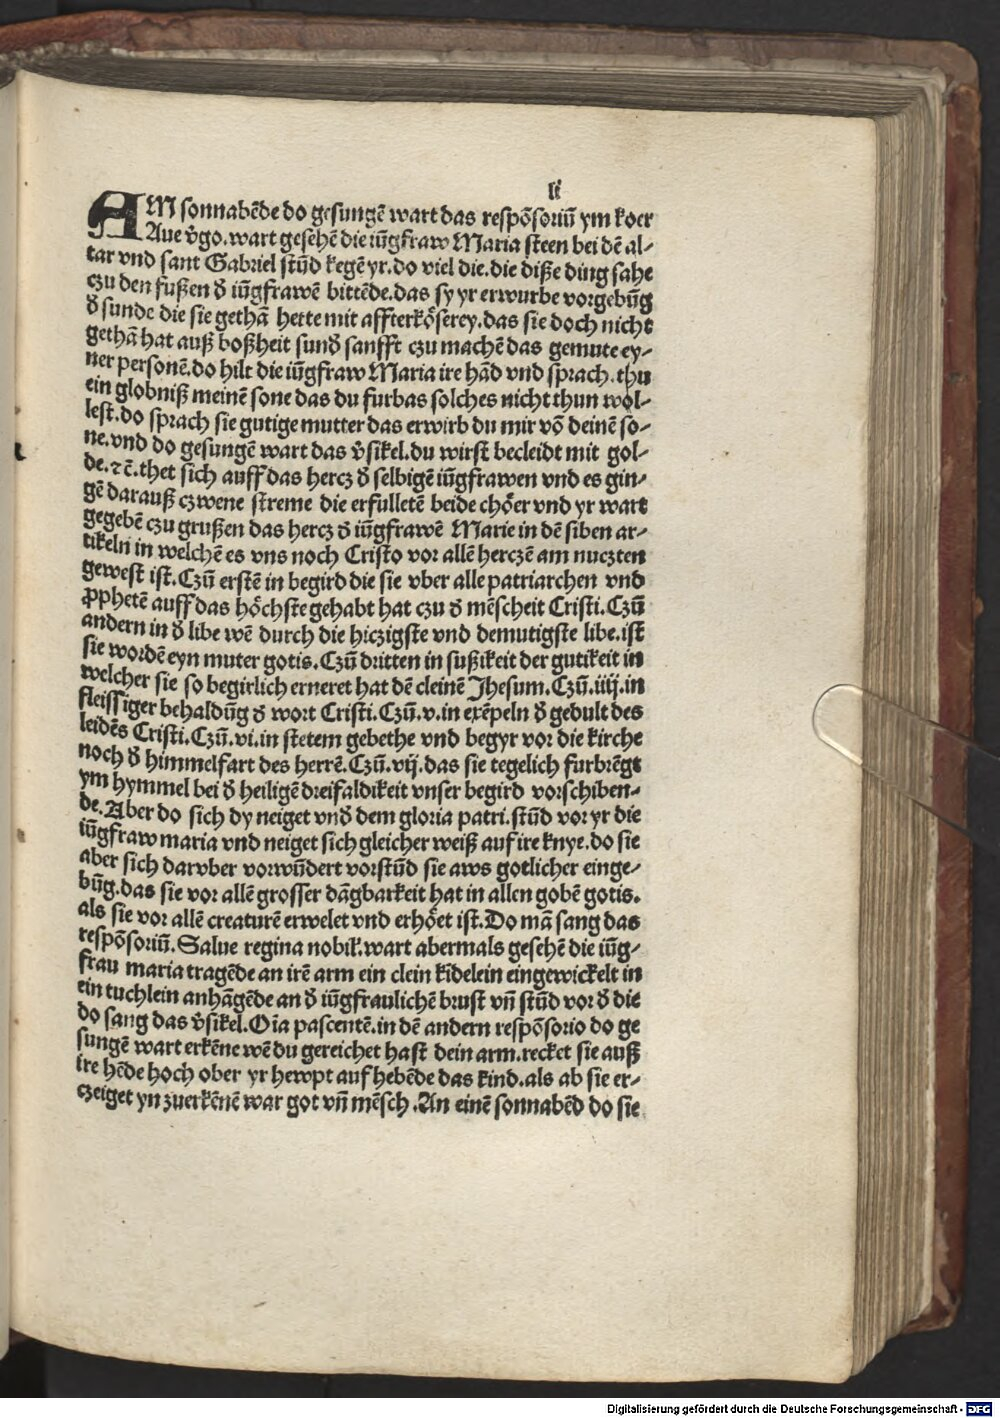 lj
AM sonnabēde do gesungē wart das respōsoriū ym koer
Aue v̄go. wart gesehē die iūgfraw Maria steen bei dē al-
tar vnd sant Gabriel stūd kegē yr. do viel die. die diße ding sahe
czu den fußen d̄ iūgfrawē bittēde. das sy yr erwurbe vorgebūg
d̄ sunde die sie gethā hette mit affterkōserey. das sie doch nicht
gethā hat auß boßheit sund̄ sanfft czu machē das gemute ey-
ner personē. do hilt die iūgfraw Maria ire hād vnd sprach. thu
ein globniß meinē sone das du furbas solches nicht thun wol-
lest. do sprach sie gutige mutter das erwirb du mir vō deinē so-
ne. vnd do gesungē wart das v̄sikel. du wirst becleidt mit gol-
de. ⁊c̄. thet sich auff das hercz d̄ selbigē iūgfrawen vnd es gin-
gē darauß czwene streme die erfulletē beide chöer vnd yr wart
gegebē czu grußen das hercz d̄ iūgfrawē Marie in dē siben ar-
tikeln in welchē es vns noch Cristo vor allē herczē am nuczten
gewest ist. Czū erstē in begird die sie vber alle patriarchen vnd
ꝓphetē auff das höchste gehabt hat czu d̄ mēscheit Cristi. Czū
andern in d̄ libe wē durch die hiczigste vnd demutigste libe. ist
sie wordē eyn muter gotis. Czū dritten in sußikeit der gutikeit in
welcher sie so begirlich erneret hat dē cleinē Jhesum. Czū. iiij. in
fleissiger behaldūg d̄ wort Cristi. Czū. v. in exēpeln d̄ gedult des
leidēs Cristi. Czū. vi. in stetem gebethe vnd begyr vor die kirche
noch d̄ himmelfart des herrē. Czū. vij. das sie tegelich furbrēgt
ym hymmel bei d̄ heiligē dreifaldikeit vnser begird vorschiben-
de. Aber do sich dy neiget vnd̄ dem gloria patri. stūd vor yr die
iūgfraw maria vnd neiget sich gleicher weiß auf ire knye. do sie
aber sich darvber vorwūdert vorstūd sie aws gotlicher einge-
būg. das sie vor allē grosser dāgbarkeit hat in allen gobē gotis.
als sie vor allē creaturē erwelet vnd erhöet ist. Do mā sang das
respōsoriū. Salue regina nobil. wart abermals gesehē die iūg-
frau maria tragēde an irē arm ein clein kīdelein eingewickelt in
ein tuchlein anhāgēde an d̄ iūgfraulichē brust vn̄ stūd vor d̄ die
do sang das v̄sikel. Oīa pascentē. in dē andern respōsorio do ge
sungē wart erkēne wē du gereichet hast dein arm. recket sie auß
ire hēde hoch ober yr hewpt aufhebēde das kind. als ab sie er-
czeiget yn zuerkēnē war got vn̄ mēsch. An einē sonnabēd do sie
Digitalisierung gefördert durch die Deutsche Forschungsgemeinschaft - DFG